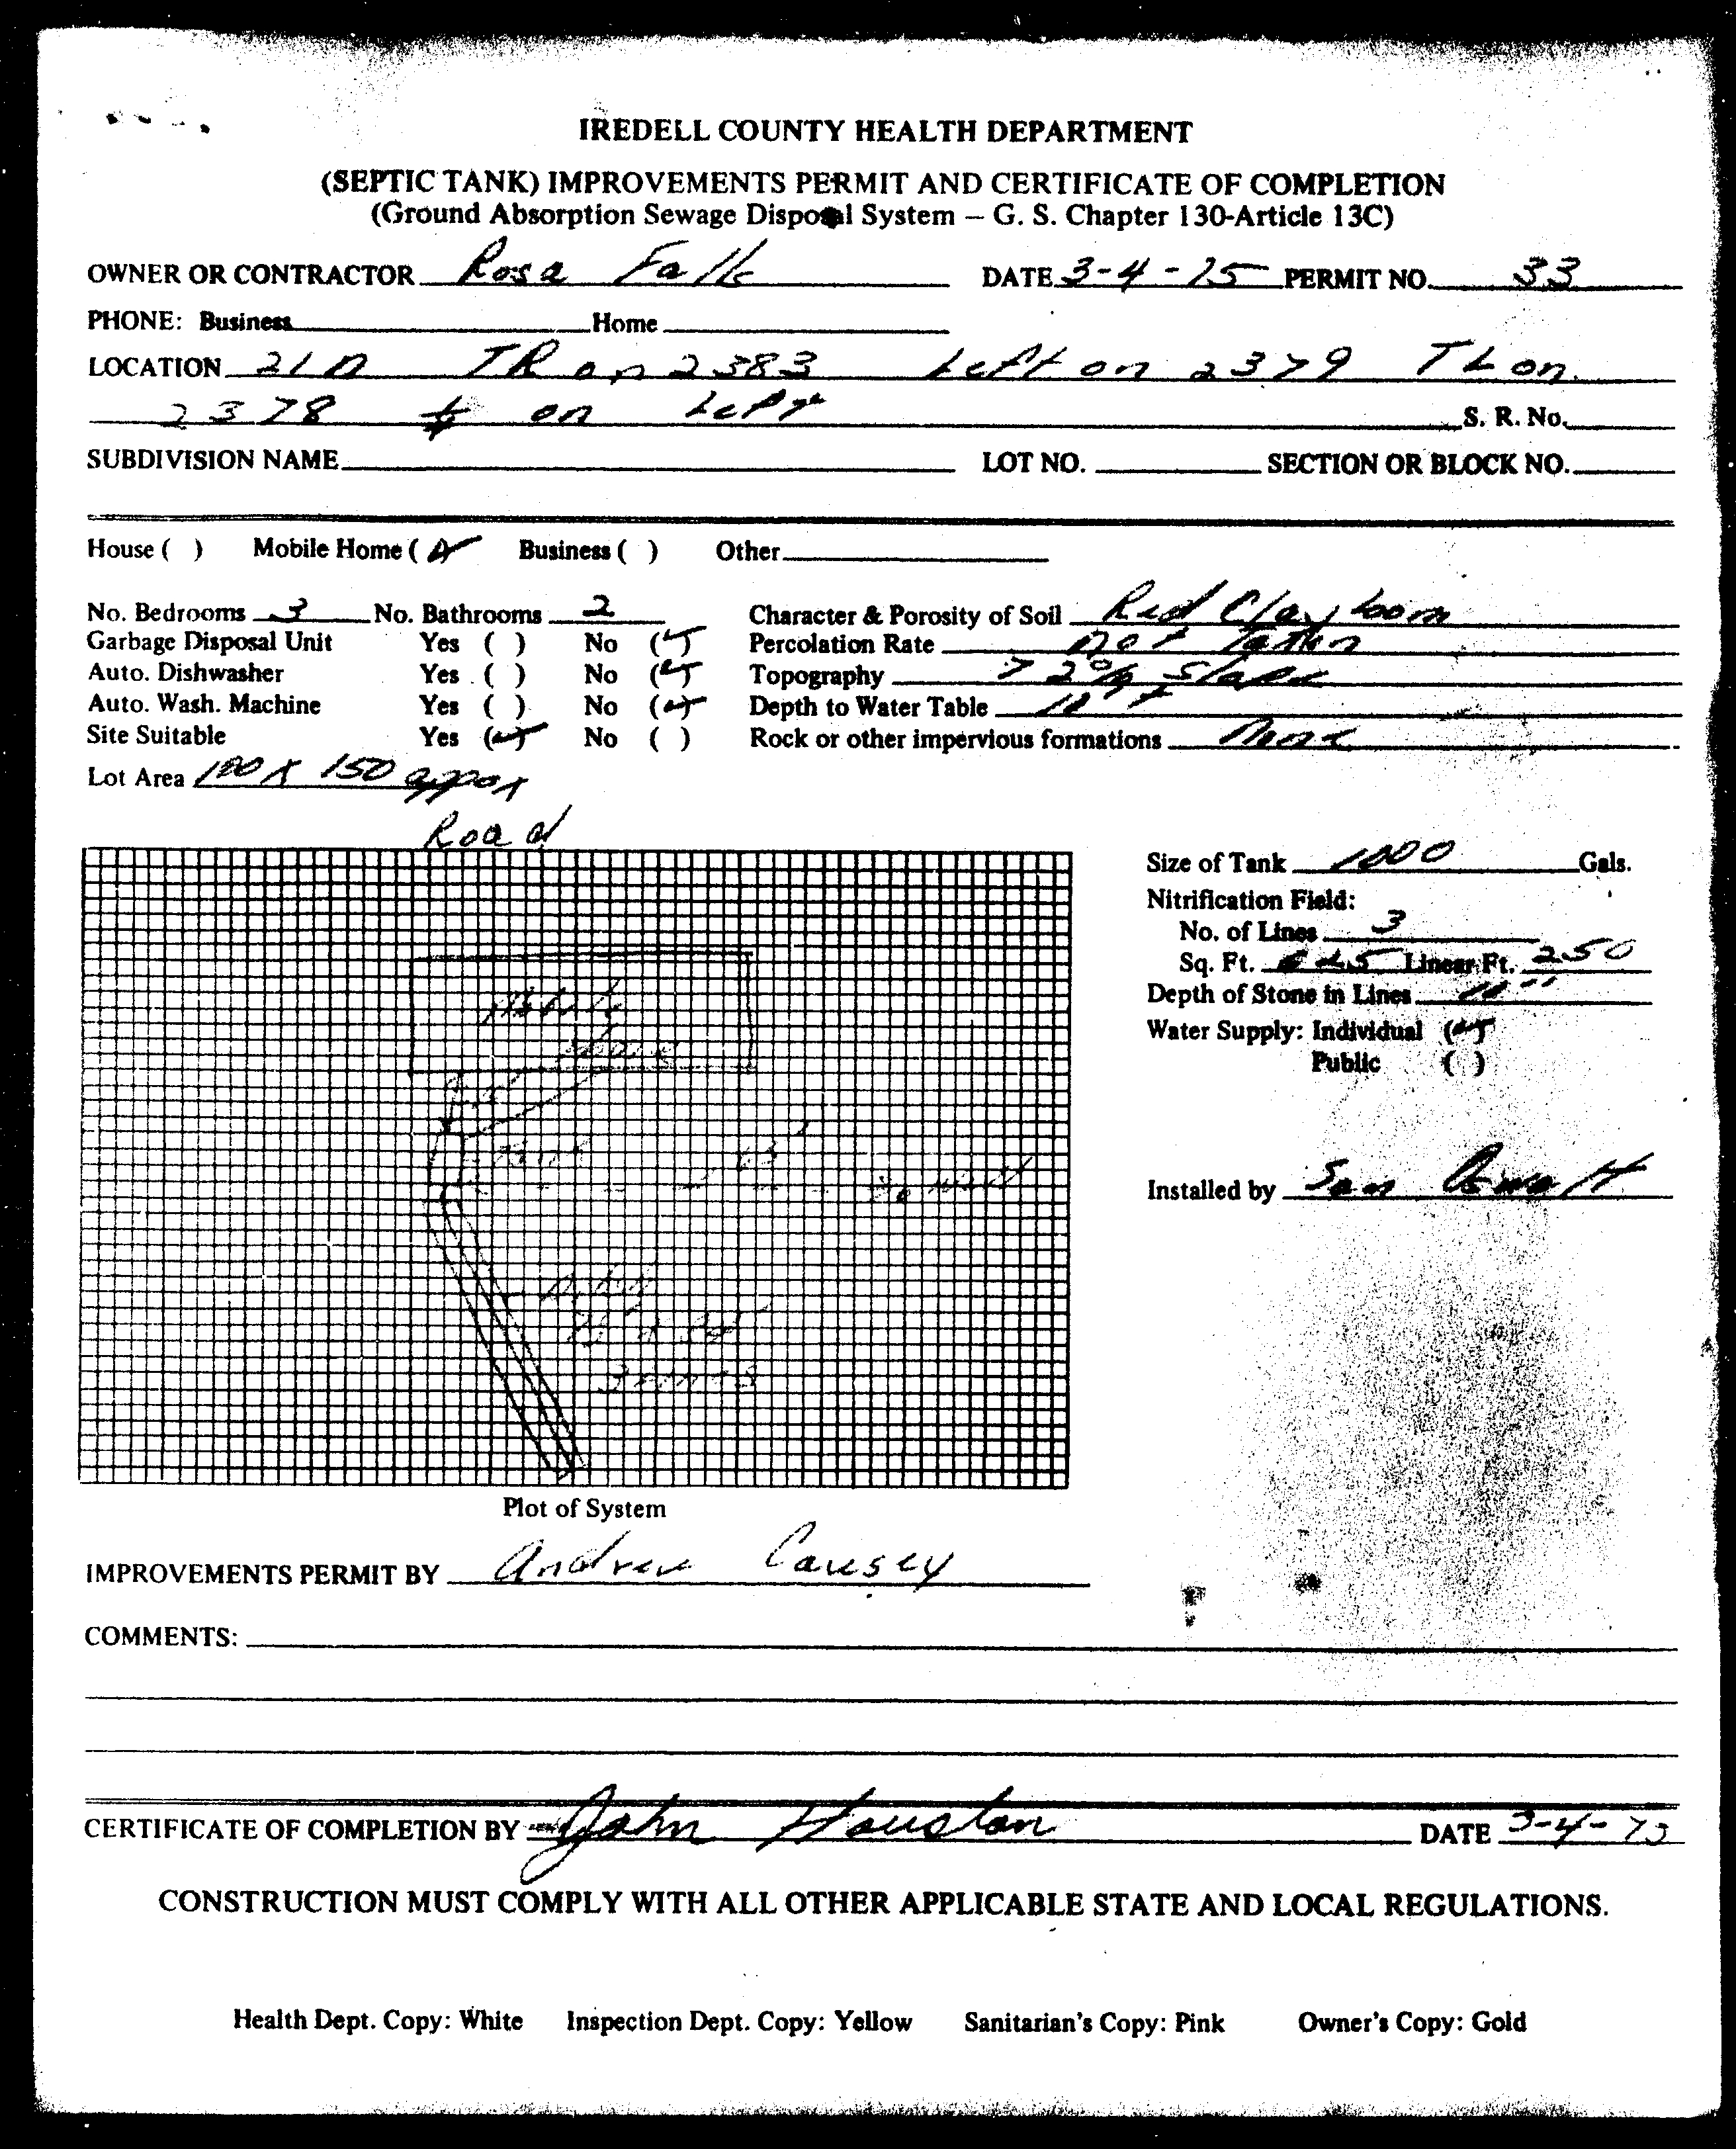 IREDELL COUNTY HEALTH DEPARTMENT
(SEPTIC TANK) IMPROVEMENTS PERMIT AND CERTIFICATE OF COMPLETION
(Ground Absorption Sewage Disposal System – G. S. Chapter 130-Article 13C)
OWNER OR CONTRACTOR Rosa Falls DATE 3-4-75 PERMIT NO. 33
PHONE: Business Home
LOCATION 21 N TR on 2383 Left on 2379 TL on
2378 on Left S. R. No.
SUBDIVISION NAME LOT NO. SECTION OR BLOCK NO.
House ( ) Mobile Home (✓) Business ( ) Other
No. Bedrooms 3 No. Bathrooms 2 Character & Porosity of Soil Red Clay Loom
Garbage Disposal Unit Yes ( ) No (✓) Percolation Rate not Taken
Auto. Dishwasher Yes ( ) No (✓) Topography > 2% Slope
Auto. Wash. Machine Yes ( ) No (✓) Depth to Water Table 10 +
Site Suitable Yes (✓) No ( ) Rock or other impervious formations None
Lot Area 100 X 150 appox
Road
Size of Tank 1000 Gals.
Nitrification Field:
No. of Lines 3
Sq. Ft. Linear Ft. 250
Depth of Stone in Lines
Water Supply: Individual (✓)
Public ( )
Mobile
Home
Tank
65'
to well
Installed by Sam
Plot of System
IMPROVEMENTS PERMIT BY Andrew Causey
COMMENTS:
CERTIFICATE OF COMPLETION BY John Houston DATE 3-4-75
CONSTRUCTION MUST COMPLY WITH ALL OTHER APPLICABLE STATE AND LOCAL REGULATIONS.
Health Dept. Copy: White Inspection Dept. Copy: Yellow Sanitarian's Copy: Pink Owner's Copy: Gold